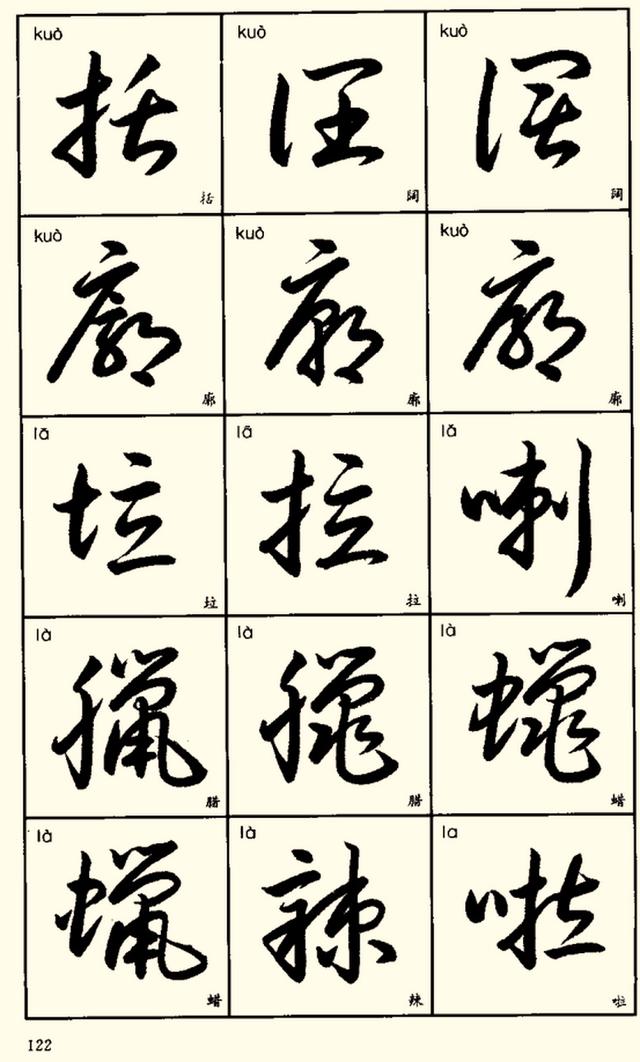 kuò kuò kuò
括 阔 阔
括 阔 阔
kuò kuò kuò
廓 廓 廓
廓 廓 廓
lā lā lǎ
垃 拉 喇
垃 拉 喇
là là là
臘 臘 蠟
腊 腊 蜡
là là la
蠟 辣 啦
蜡 辣 啦
122